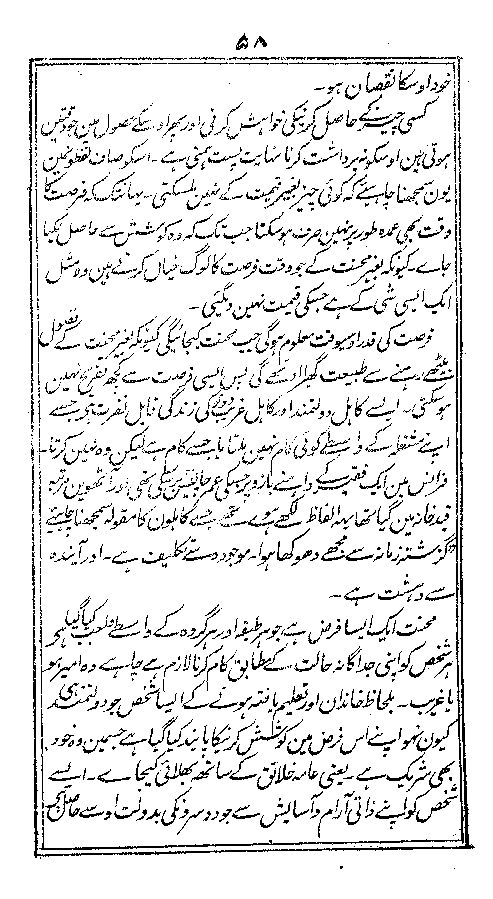 ۵۸
خود اوسکا نقصان ہو۔
کسی چیز کے حاصل کرنیکی خواہش کرنی اور پھر اوسکے حصول مین جو دقتین
ہوتی ہین اوسکو نہ برداشت کرنا نہایت پست ہمتی ہے۔ اسکو صاف لفظونمین
یون سمجھنا چاہئے کہ کوئی چیز بغیر قیمت کے نہین ملسکتی۔ یہانتک کہ فرصت کا
وقت بھی عمدہ طور پر نہین صرف ہو سکتا جب تک کہ وہ کوشش سے حاصل نکیا
جاے۔ کیونکہ بغیر محنت کے جو وقت فرصت کا لوگ خیال کرتے ہین وہ مثل
ایک ایسی شی کے ہے جسکی قیمت نہین دیگئی۔
فرصت کی قدر اوسیوقت معلوم ہوگی جب محنت کیجائیگی کیونکہ بغیر محنت کے فضول
بیٹھے رہنے سے طبیعت گھبرا اوٹھے گی پس ایسی فرصت سے کچھ تفریح نہین
ہو سکتی۔ ایسے کاہل دولتمند اور کاہل غریب دونوکی زندگی قابل نفرت ہی جسے
اپنے شغل کے واسطے کوئی کام نہین ملتا یا جسے کام ہے لیکن وہ نہین کرتا۔
فرانس مین ایک فقیر کے داہنے بازو پر جسکی عمر چالیس برسکی تھی اور آٹھوین مرتبہ
قیدخانہ مین گیا تھا یہہ الفاظ لکھے ہوے تھے جسے کاہلون کا مقولہ سمجھنا چاہئے
"گزشتہ زمانہ سے مجھے دھوکھا ہوا۔ موجودہ سے تکلیف ہے۔ اور آیندہ
سے دہشت ہے۔
محنت ایک ایسا فرض ہے جو ہر طبقہ اور ہر گروہ کے واسطے واجب کیا گیا ہر
ہر شخص کو اپنی جداگانہ حالت کے مطابق کام کرنا لازم ہے چاہے وہ امیر ہو
یا غریب۔ بلحاظ خاندان اور تعلیم یافتہ ہونے کے ایسا شخص جو دولتمند ہی
کیون نہو اپنے اس فرض مین کوشش کرنیکا پابند کیا گیا ہے جسمین وہ خود
بھی شریک ہے۔ یعنی عامہ خلائق کے ساتھ بھلائی کیجاے۔ ایسے
شخص کو اپنے ذاتی آرام و آسایش سے جو دوسرونکی بدولت اوسے حاصل ہی